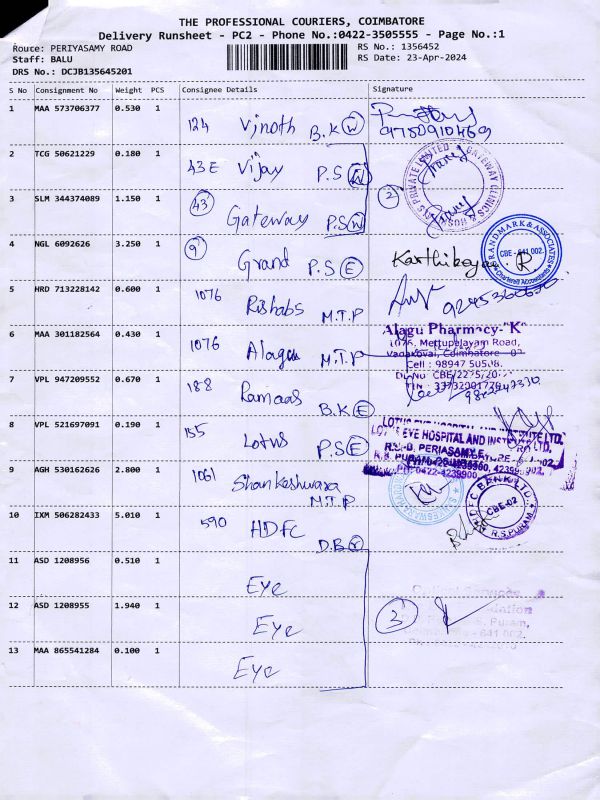 THE PROFESSIONAL COURIERS, COIMBATORE
Delivery Runsheet - PC2 - Phone No.:0422-3505555 - Page No.:1
Route: PERIYASAMY ROAD
RS No.: 1356452
Staff: BALU
RS Date: 23-Apr-2024
DRS No.: DCJB135645201
S No Consignment No Weight PCS Consignee Details Signature
1 MAA 573706377 0.530 1 124 Vinoth B.K W
2 TCG 50621229 0.180 1 43 E Vijay P.S W
3 SLM 344374089 1.150 1 43 Gateway P.S W 2
4 NGL 6092626 3.250 1 9 Grand P.S E
RANDMARK & ASSOCIATES
CBE - 641 002.
Chartered Accountants
5 HRD 713228142 0.600 1 1076 Rishabs M.T.P
6 MAA 301182564 0.430 1 1076 Alagu M.T.P
Alagu Pharmacy-"K"
1076, Mettupalayam Road,
Vadakovai, Coimbatore - 02
7 VPL 947209552 0.670 1 188 Ramaas B.K E
8 VPL 521697091 0.190 1 155 Lotus P.S E
LOTUS EYE HOSPITAL AND INSTITUTE LTD.
9 AGH 530162626 2.800 1 1061 Shankeshwara M.T.P
10 IXM 506282433 5.010 1 590 HDFC D.B
HDFC BANK LTD.
CBE-02
R.S.PURAM
11 ASD 1208956 0.510 1 Eye
12 ASD 1208955 1.940 1 Eye 3
13 MAA 865541284 0.100 1 Eye